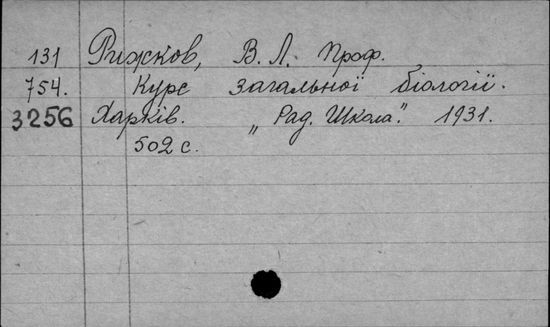 131 Рижков, В. Л. Проф.
754. Курс загальної біології.
3256 Харків. „Рад. Школа." 1931.
502 с.